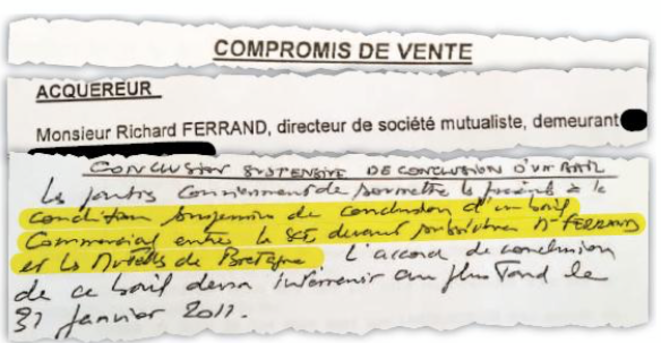 COMPROMIS DE VENTE
ACQUEREUR
Monsieur Richard FERRAND, directeur de société mutualiste, demeurant
CONCLUSION SUSPENSIVE DE CONCLUSION D'UN BAIL
Les parties conviennent de soumettre le présent à la
condition suspensive de conclusion d'un bail
Commercial entre la SCI devant substituer Mr FERRAND
et les Mutuelles de Bretagne L'accord de conclusion
de ce bail devra intervenir au plus tard le
31 janvier 2011.